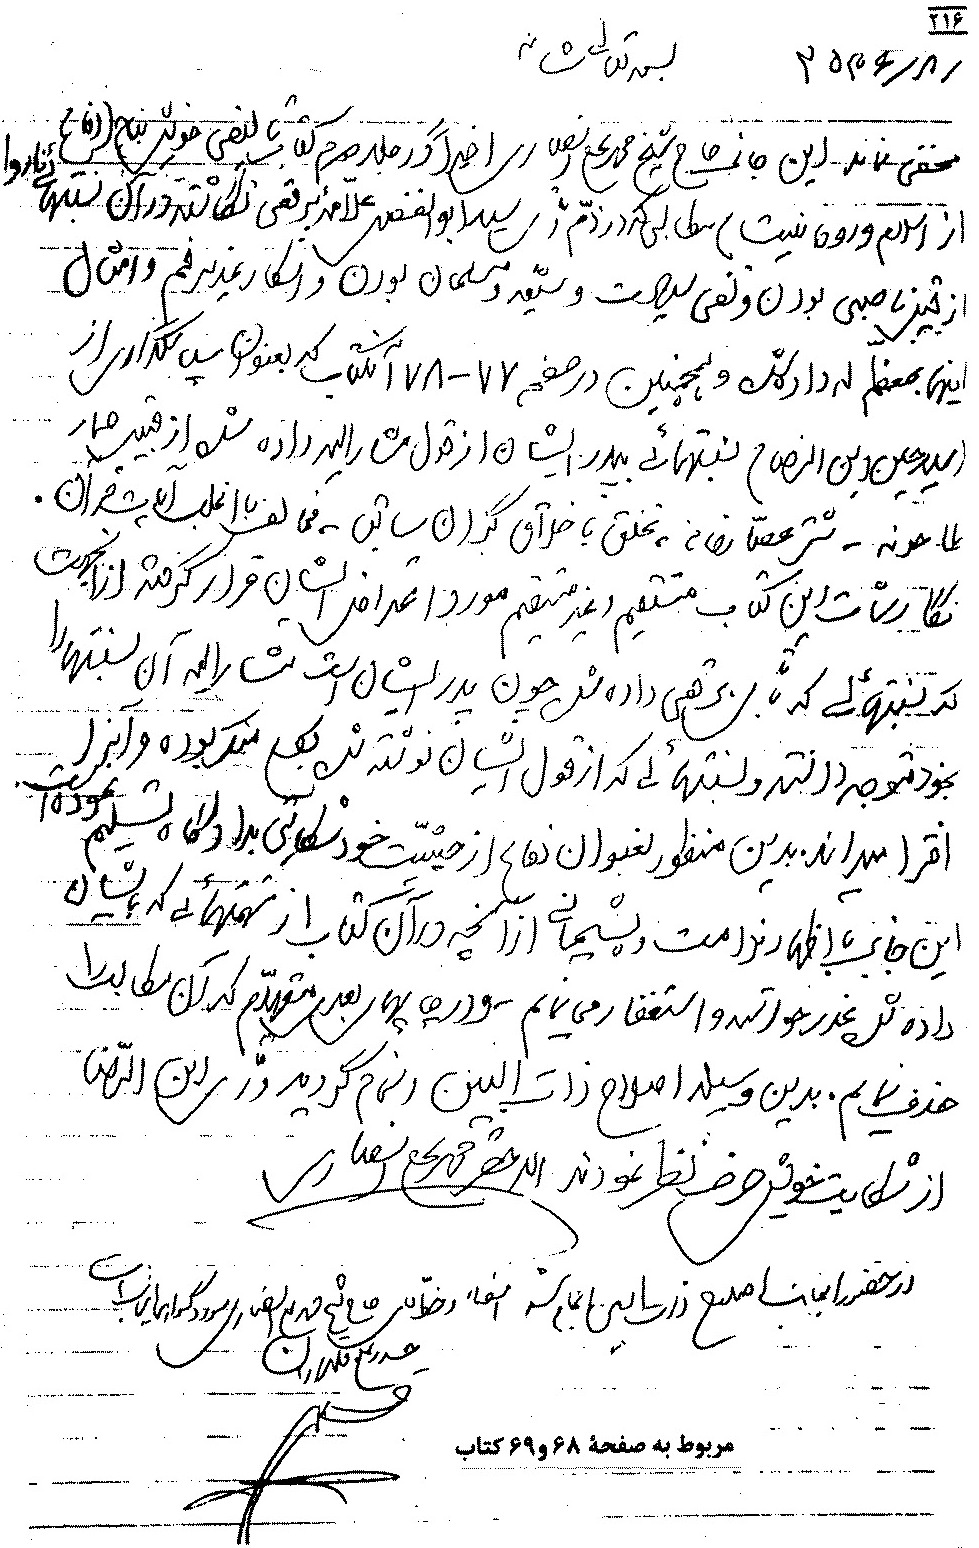 ۲۱۶
بسمه تعالی شأنه
مخفی نماند این جانب حاج شیخ محمد انصاری اخیراً در جلد سوم کتاب تألیفی خویش بنام (دفاع
از اسلام و روحانیت) مطالبی که در ذمّ آقای سید ابوالفضل علامه برقعی نگاشته و در آن نسبتهای ناروا
از قبیل ناصبی بودن و نفی سیادت و شیعه و مسلمان بودن و انکار غدیر خم و امثال
اینها بمعظم له داده‌ام و همچنین در صفحه ۷۷-۷۸ آنکتاب که بعنوان سپاسگذاری از
ابن الرضا نسبتهائی بپدر ایشان از قول مشارالیه داده شده از قبیل حمار
طاحونه - - تخلق باخلاق - مخالف با اغلب آیات قرآن.
نگارشات این کتاب مستقیم و غیر مستقیم مورد اعتراض ایشان قرار گرفته از آنجهت
که نسبتهائی که بآقای برقعی داده شده چون پدر ایشان است مشارالیه آن نسبتها را
بخود متوجه دانسته و نسبتهائی که از قول ایشان نوشته شده بکلی منکر بوده و آنرا
افترا میداند بدین منظور بعنوان دفاع از حیثیت خود شکایتی بدادگاه تسلیم نموده است
این جانب با اظهار ندامت و پشیمانی از آنچه در آن کتاب از تهمتهائی که بایشان
داده شده عذر خواسته و استغفار می نمایم و در چاپهای بعدی متعهدم که آن مطالب را
حذف نمایم. بدین وسیله اصلاح ذات البین انجام گردید و آقای ابن الرضا
از شکایت خویش صرف نظر نمودند الاحقر محمد انصاری
در حضور اینجانب اصلاح ذات البین انجام شد امضاء و خط آقای حاج شیخ محمد انصاری مورد گواهی اینجانب است
حیدرعلی قلمداران
مربوط به صفحهٔ ۶۸ و ۶۹ کتاب